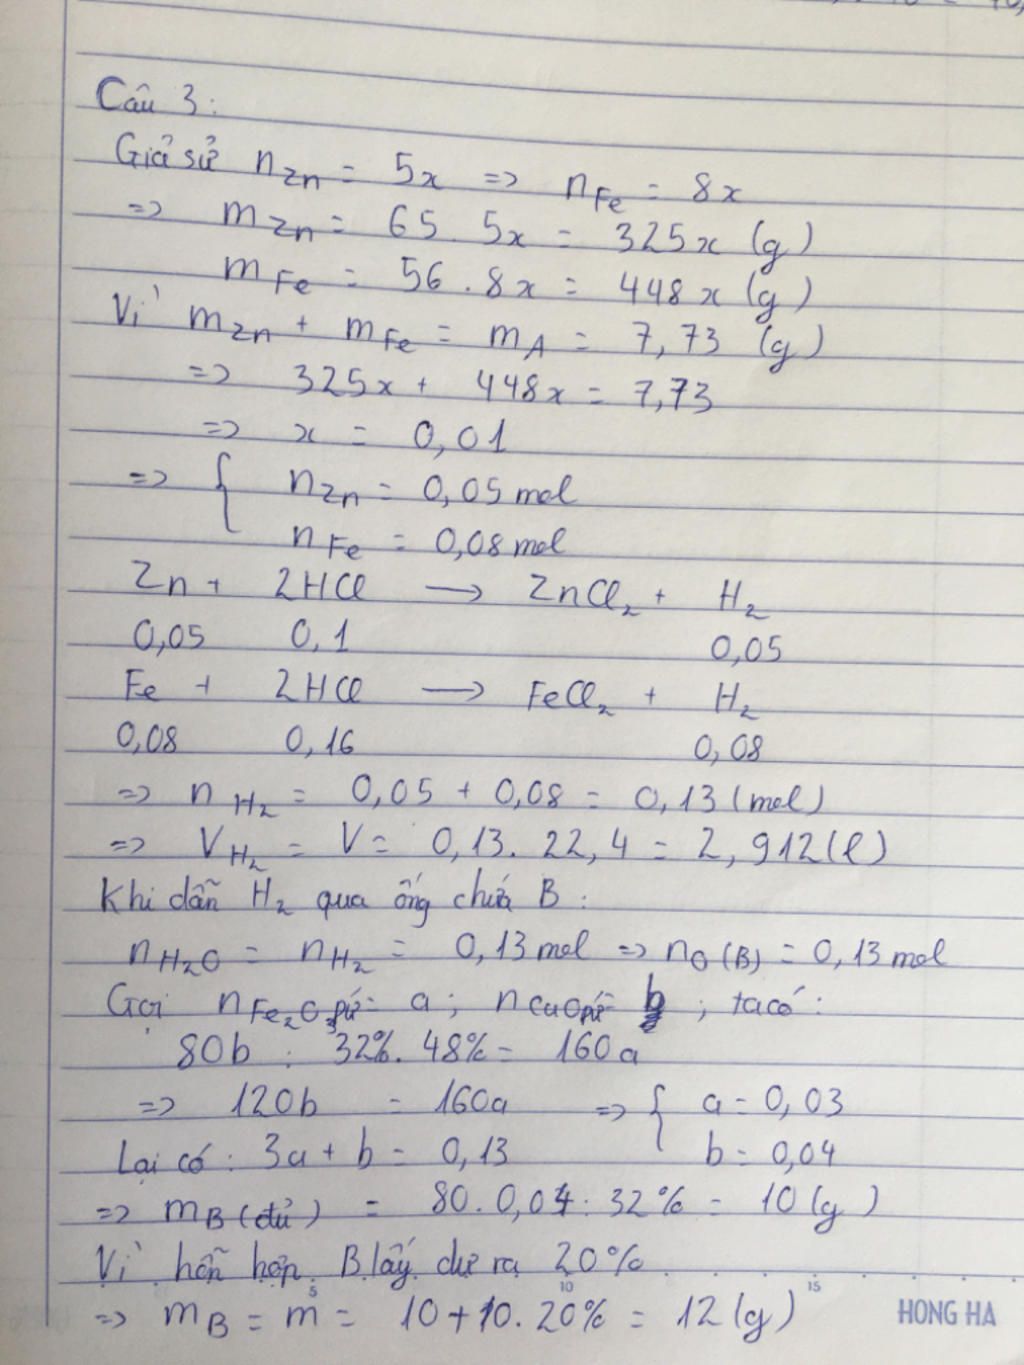 Câu 3:
Giả sử nZn = 5x => nFe = 8x
=> mZn = 65 . 5x = 325x (g)
mFe = 56 . 8x = 448x (g)
Vì mZn + mFe = mA = 7,73 (g)
=> 325x + 448x = 7,73
=> x = 0,01
=> { nZn = 0,05 mol
nFe = 0,08 mol
Zn + 2HCl → ZnCl₂ + H₂
0,05 0,1 0,05
Fe + 2HCl → FeCl₂ + H₂
0,08 0,16 0,08
=> nH₂ = 0,05 + 0,08 = 0,13 (mol)
=> VH₂ = V = 0,13 . 22,4 = 2,912 (l)
Khi dẫn H₂ qua ống chứa B :
nH₂O = nH₂ = 0,13 mol => nO (B) = 0,13 mol
Gọi nFe₂O₃pứ = a ; nCuOpứ = b ; ta có :
80b : 32% . 48% = 160a
=> 120b = 160a => { a = 0,03
Lại có : 3a + b = 0,13 b = 0,04
=> mB (đủ) = 80 . 0,04 : 32% = 10 (g)
Vì hỗn hợp B lấy dư ra 20%
=> mB = m = 10 + 10 . 20% = 12 (g)
5 10 15
HONG HA